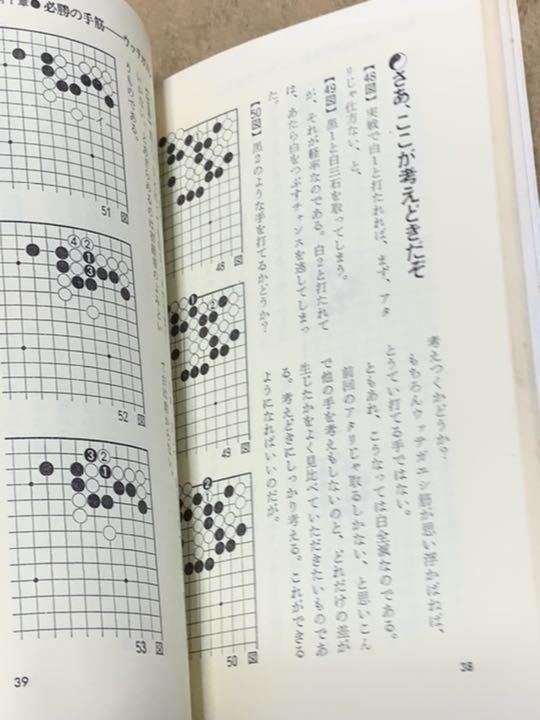 さあ、ここが考えどきだぞ
【48図】実戦で白1と打たれれば、まず、アタ
リじゃ仕方ない、と、
【49図】黒1と白三石を取ってしまう。
が、それが軽率なのである。白2と打たれて
は、あたら白をつぶすチャンスを逃してしまっ
た。
【50図】黒2のような手を打てるかどうか?
考えつくかどうか?
もちろんウッテガエシ筋が思い浮かばねば、
とうてい打てる手ではない。
ともあれ、こうなっては白全滅なのである。
前回のアタリじゃ取るしかない、と思いこん
で他の手を考えもしないのと、どれだけの差が
生じたかをよく見比べていただきたいものであ
る。考えどきにしっかり考える。これができる
ようになればいいのだが。
48 図
1
2
49 図
2
1
50 図
38
必勝の手筋
うものである。
イ
51 図
4 2
1
3
52 図
3 2
1
53 図
39